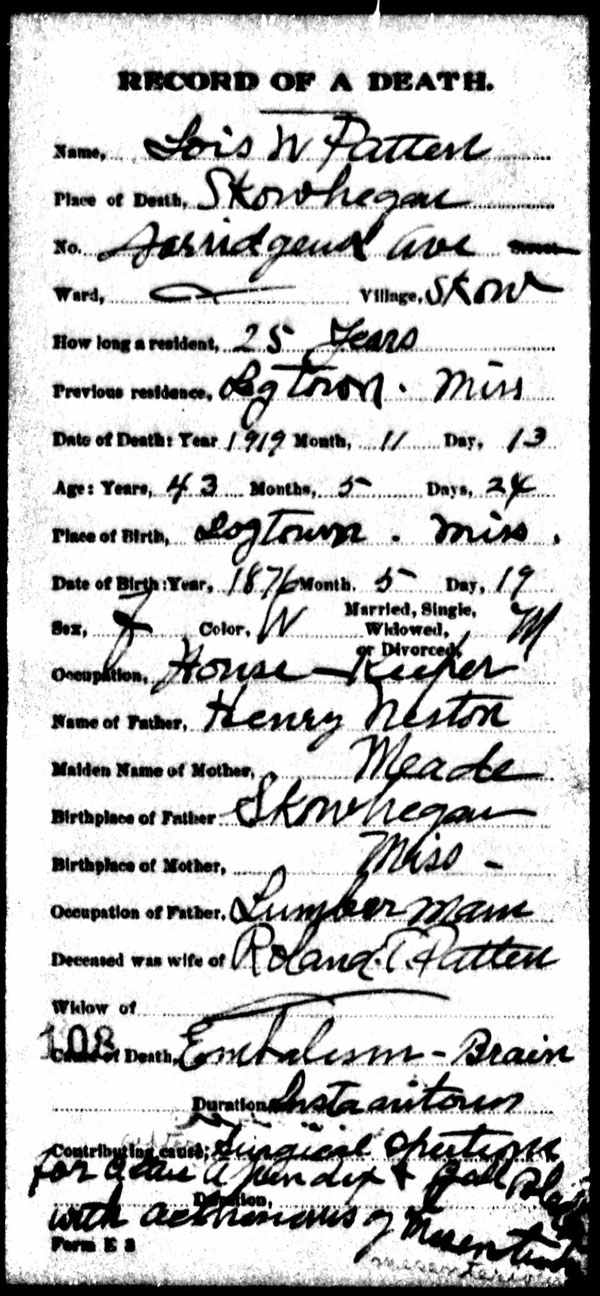 RECORD OF A DEATH.
Name, Lois W Patten
Place of Death, Skowhegan
No. Ave Street
Ward, Village, Skow
How long a resident, 25 Years
Previous residence, Logtown. Miss
Date of Death: Year 1919 Month, 11 Day, 13
Age: Years, 43 Months, 5 Days, 24
Place of Birth, Logtown. Miss.
Date of Birth: Year, 1876 Month, 5 Day, 19
Married, Single,
Sex, F Color, W Widowed, M
or Divorced,
Occupation, House Keeper
Name of Father, Henry Weston
Maiden Name of Mother, Meade
Birthplace of Father Skowhegan
Birthplace of Mother, Miss -
Occupation of Father, Lumber mam
Deceased was wife of Roland T. Patten
Widow of
108
Cause of Death, Embalism - Brain
Duration
Contributing cause: Surgical
for apendix & Gall
Duration,
with of
Form E 2